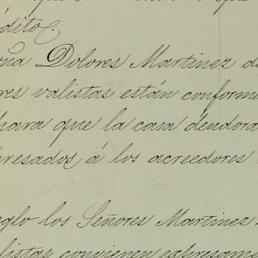 dito.
Dolores Martinez d
res valistas están conforme
para que la casa deudora
presados á los acreedores
glo los Señores Martinez
listas convienen espresam